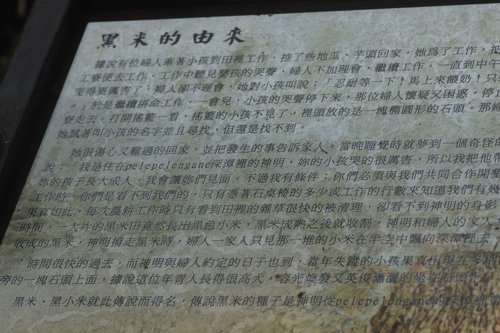 黑米的由來
據說有位婦人牽著小孩到田裡工作,挖了些地瓜、芋頭回家。她為了工作,把
工寮便去工作。工作中聽見嬰孩的哭聲,婦人不加理會,繼續工作。一直到中午
哭得更厲害了,婦人卻不理會,她對小孩叫說:「忍耐等一下!馬上來餵奶!只
。於是繼續拼命工作。一會兒,小孩的哭聲停下來,那位婦人懷疑又困惑,停
寮走去。打開搖籃一看,搖籃的小孩不見了,裡頭放的是一塊橢圓形的石頭。那
她試著叫小孩的名字並且尋找,但還是找不到。
她很傷心又難過的回家,並把發生的事告訴家人。當晚睡覺時就夢到一個奇怪的
說:「我是住在pelepelengane深潭裡的神明,妳的小孩哭的很厲害,所以我把他
妳的孩子長大成人,我會讓妳們見面。不過我有條件:你們必須與我們共同合作開墾
工作時,你們是看不到我們的,只有憑著石桌椅的多少或工作的行數來知道我們有幾
果真如此,每次農耕工作時只有看到田裡的雜草很快的被清理,卻看不到神明的身影
時間,大片的黑米田竟然長出黑色小米,黑米成熟之後就收割,神明和婦人的家人
收成的黑米,神明揹走黑米時,婦人一家人只見那一堆的小米在半空中飄向深潭裡去
時間很快的過去,而神明與婦人約定的日子也到,當年失蹤的小孩果真出現在
旁的一塊石頭上面,據說這位年青人長得很高大,容光煥發又英俊瀟灑的坐在石頭
黑米、黑小米就此傳說而得名,傳說黑米的種子是神明從pelepelengane的深潭